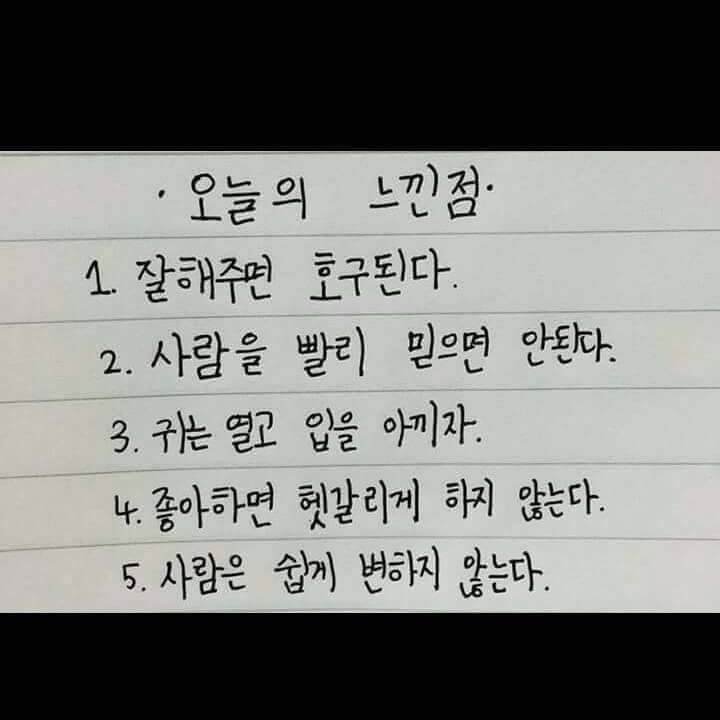 · 오늘의 느낀점·
1. 잘해주면 호구된다.
2. 사람을 빨리 믿으면 안된다.
3. 귀는 열고 입을 아끼자.
4. 좋아하면 헷갈리게 하지 않는다.
5. 사람은 쉽게 변하지 않는다.